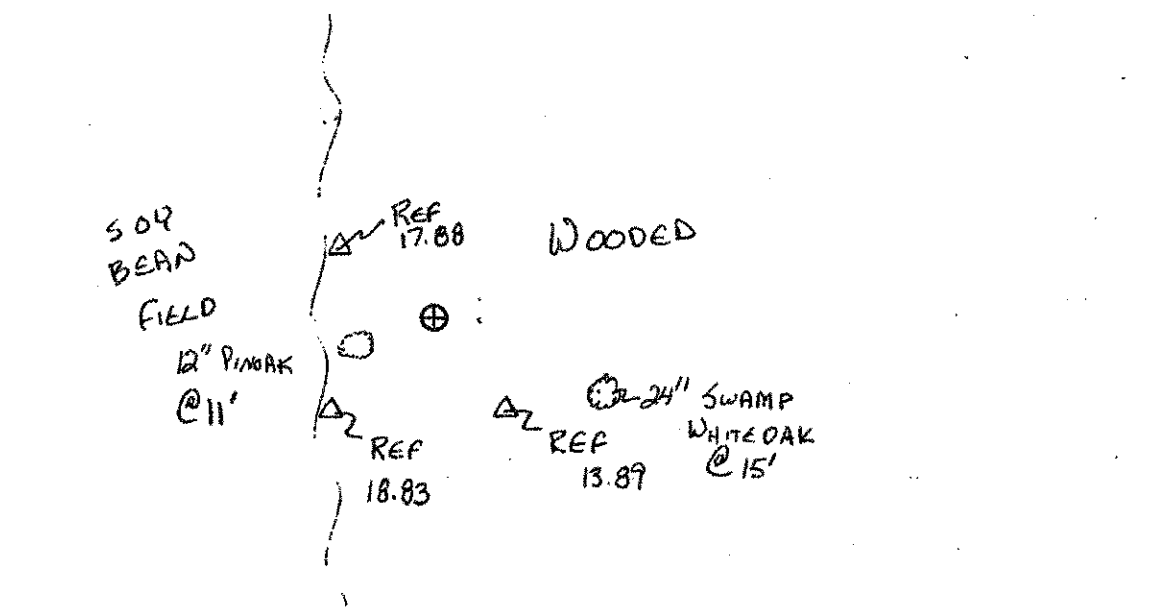 SOY
BEAN
FIELD
12" PINOAK
@ 11'
REF
17.88
WOODED
REF
18.83
REF
13.89
24" SWAMP
WHITE OAK
@ 15'